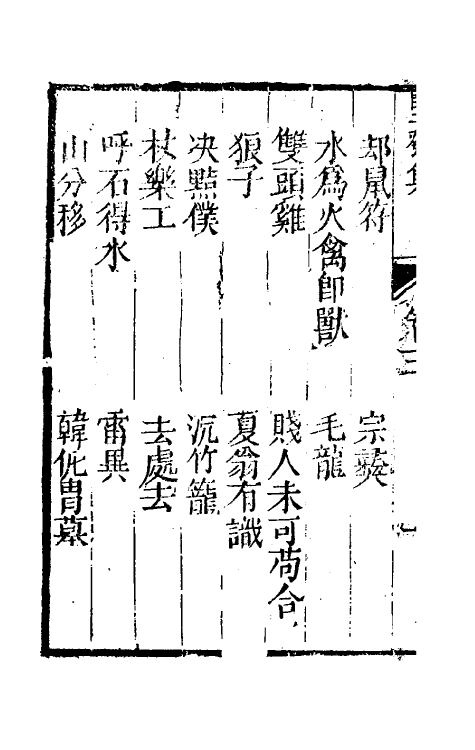 却鼠符　宗彝
水爲火禽卽獸　毛龍
雙頭雞　賤人未可苟合
狼子　夏翁有識
决黠僕　沉竹籠
杖樂工　去處去
呼石得水　雷異
山分移　韓侂胄墓